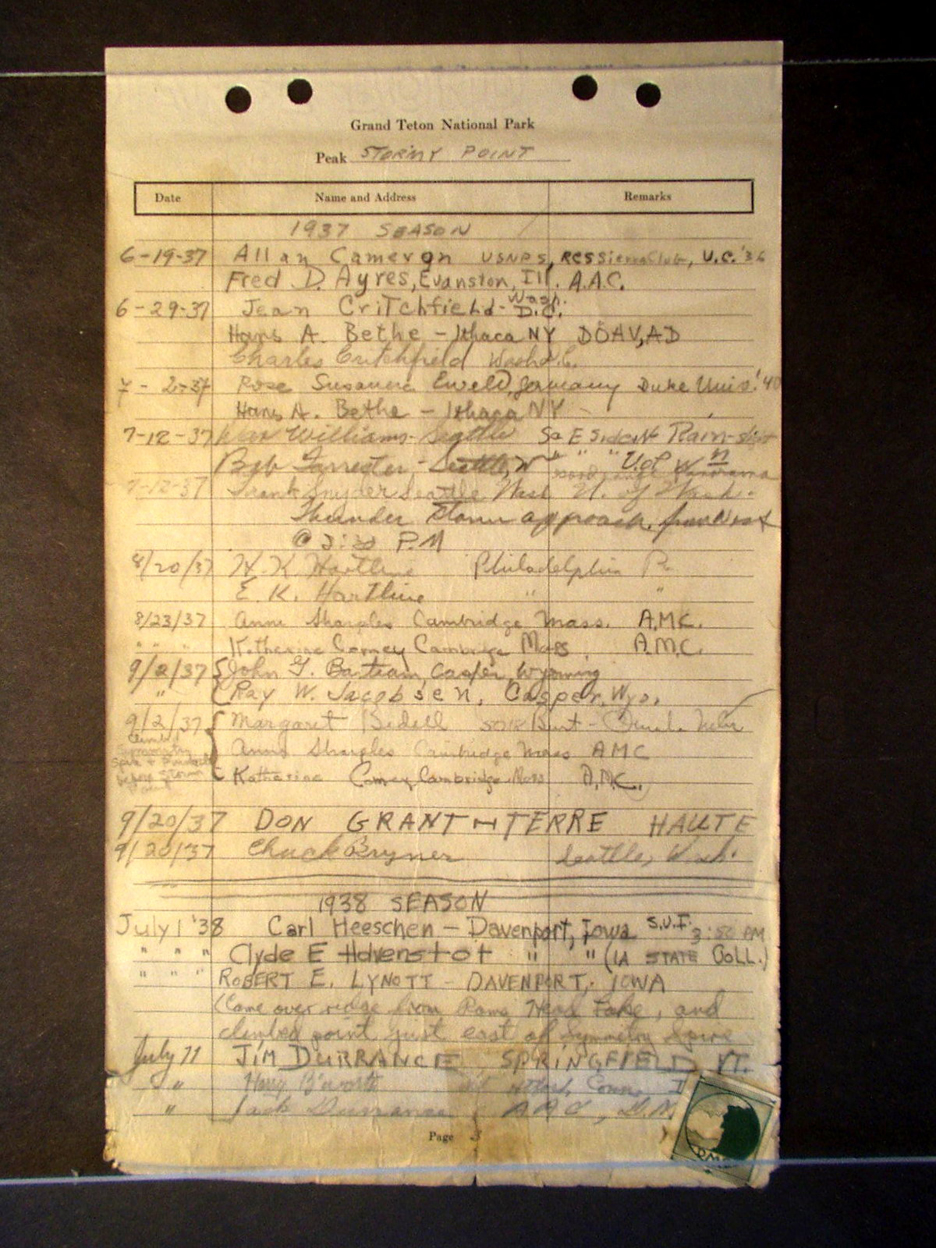 Grand Teton National Park
Peak STORMY POINT
Date Name and Address Remarks
1937 SEASON
6-19-37 Allan Cameron USNPS, RCS Sierra Club, U.C. '36
Fred D. Ayres, Evanston, Ill. A.A.C.
6-29-37 Jean Critchfield - Wash. D.C.
Hans A. Bethe - Ithaca NY DÖAV, AD
Charles Critchfield Wash D.C.
7-2-37 Rose Susanna Ewald, Germany Duke Univ. '40
Hans A. Bethe - Ithaca NY
7-12-37 Williams - Seattle
Bob Forrester - Seattle, W
7-12-37 Frank Snyder Seattle Wash U. of Wash.
Thunder Storm approach. from West
@ 2:30 P.M
8/20/37 H. K. Hartline Philadelphia Pa
E. K. Hartline " "
8/23/37 Anne Sharples Cambridge Mass. A.M.C.
" " " Katherine Comey Cambridge Mass. A.M.C.
9/2/37 John G. Bartram, Casper, Wyoming
" Ray W. Jacobsen, Casper, Wyo.
9/2/37 Margaret Bedell
Climbed Symmetry Spire + before storm Anne Sharples Cambridge Mass AMC
Katharine Comey Cambridge Mass A.M.C.
9/20/37 DON GRANT - TERRE HAUTE
9/20/37 Chuck Bryner Seattle, Wash.
1938 SEASON
July 1 '38 Carl Heeschen - Davenport, Iowa S.U.I. 3:50 PM
" " " Clyde E Hdvenstot " " (IA STATE COLL.)
" " " ROBERT E. LYNOTT - DAVENPORT, IOWA
(Came over ridge from Rams Head Lake, and
climbed point just east of Symmetry Spire
July 11 JIM DURRANCE SPRINGFIELD VT.
" Conn
" Jack Durrance AAC,
Page 3